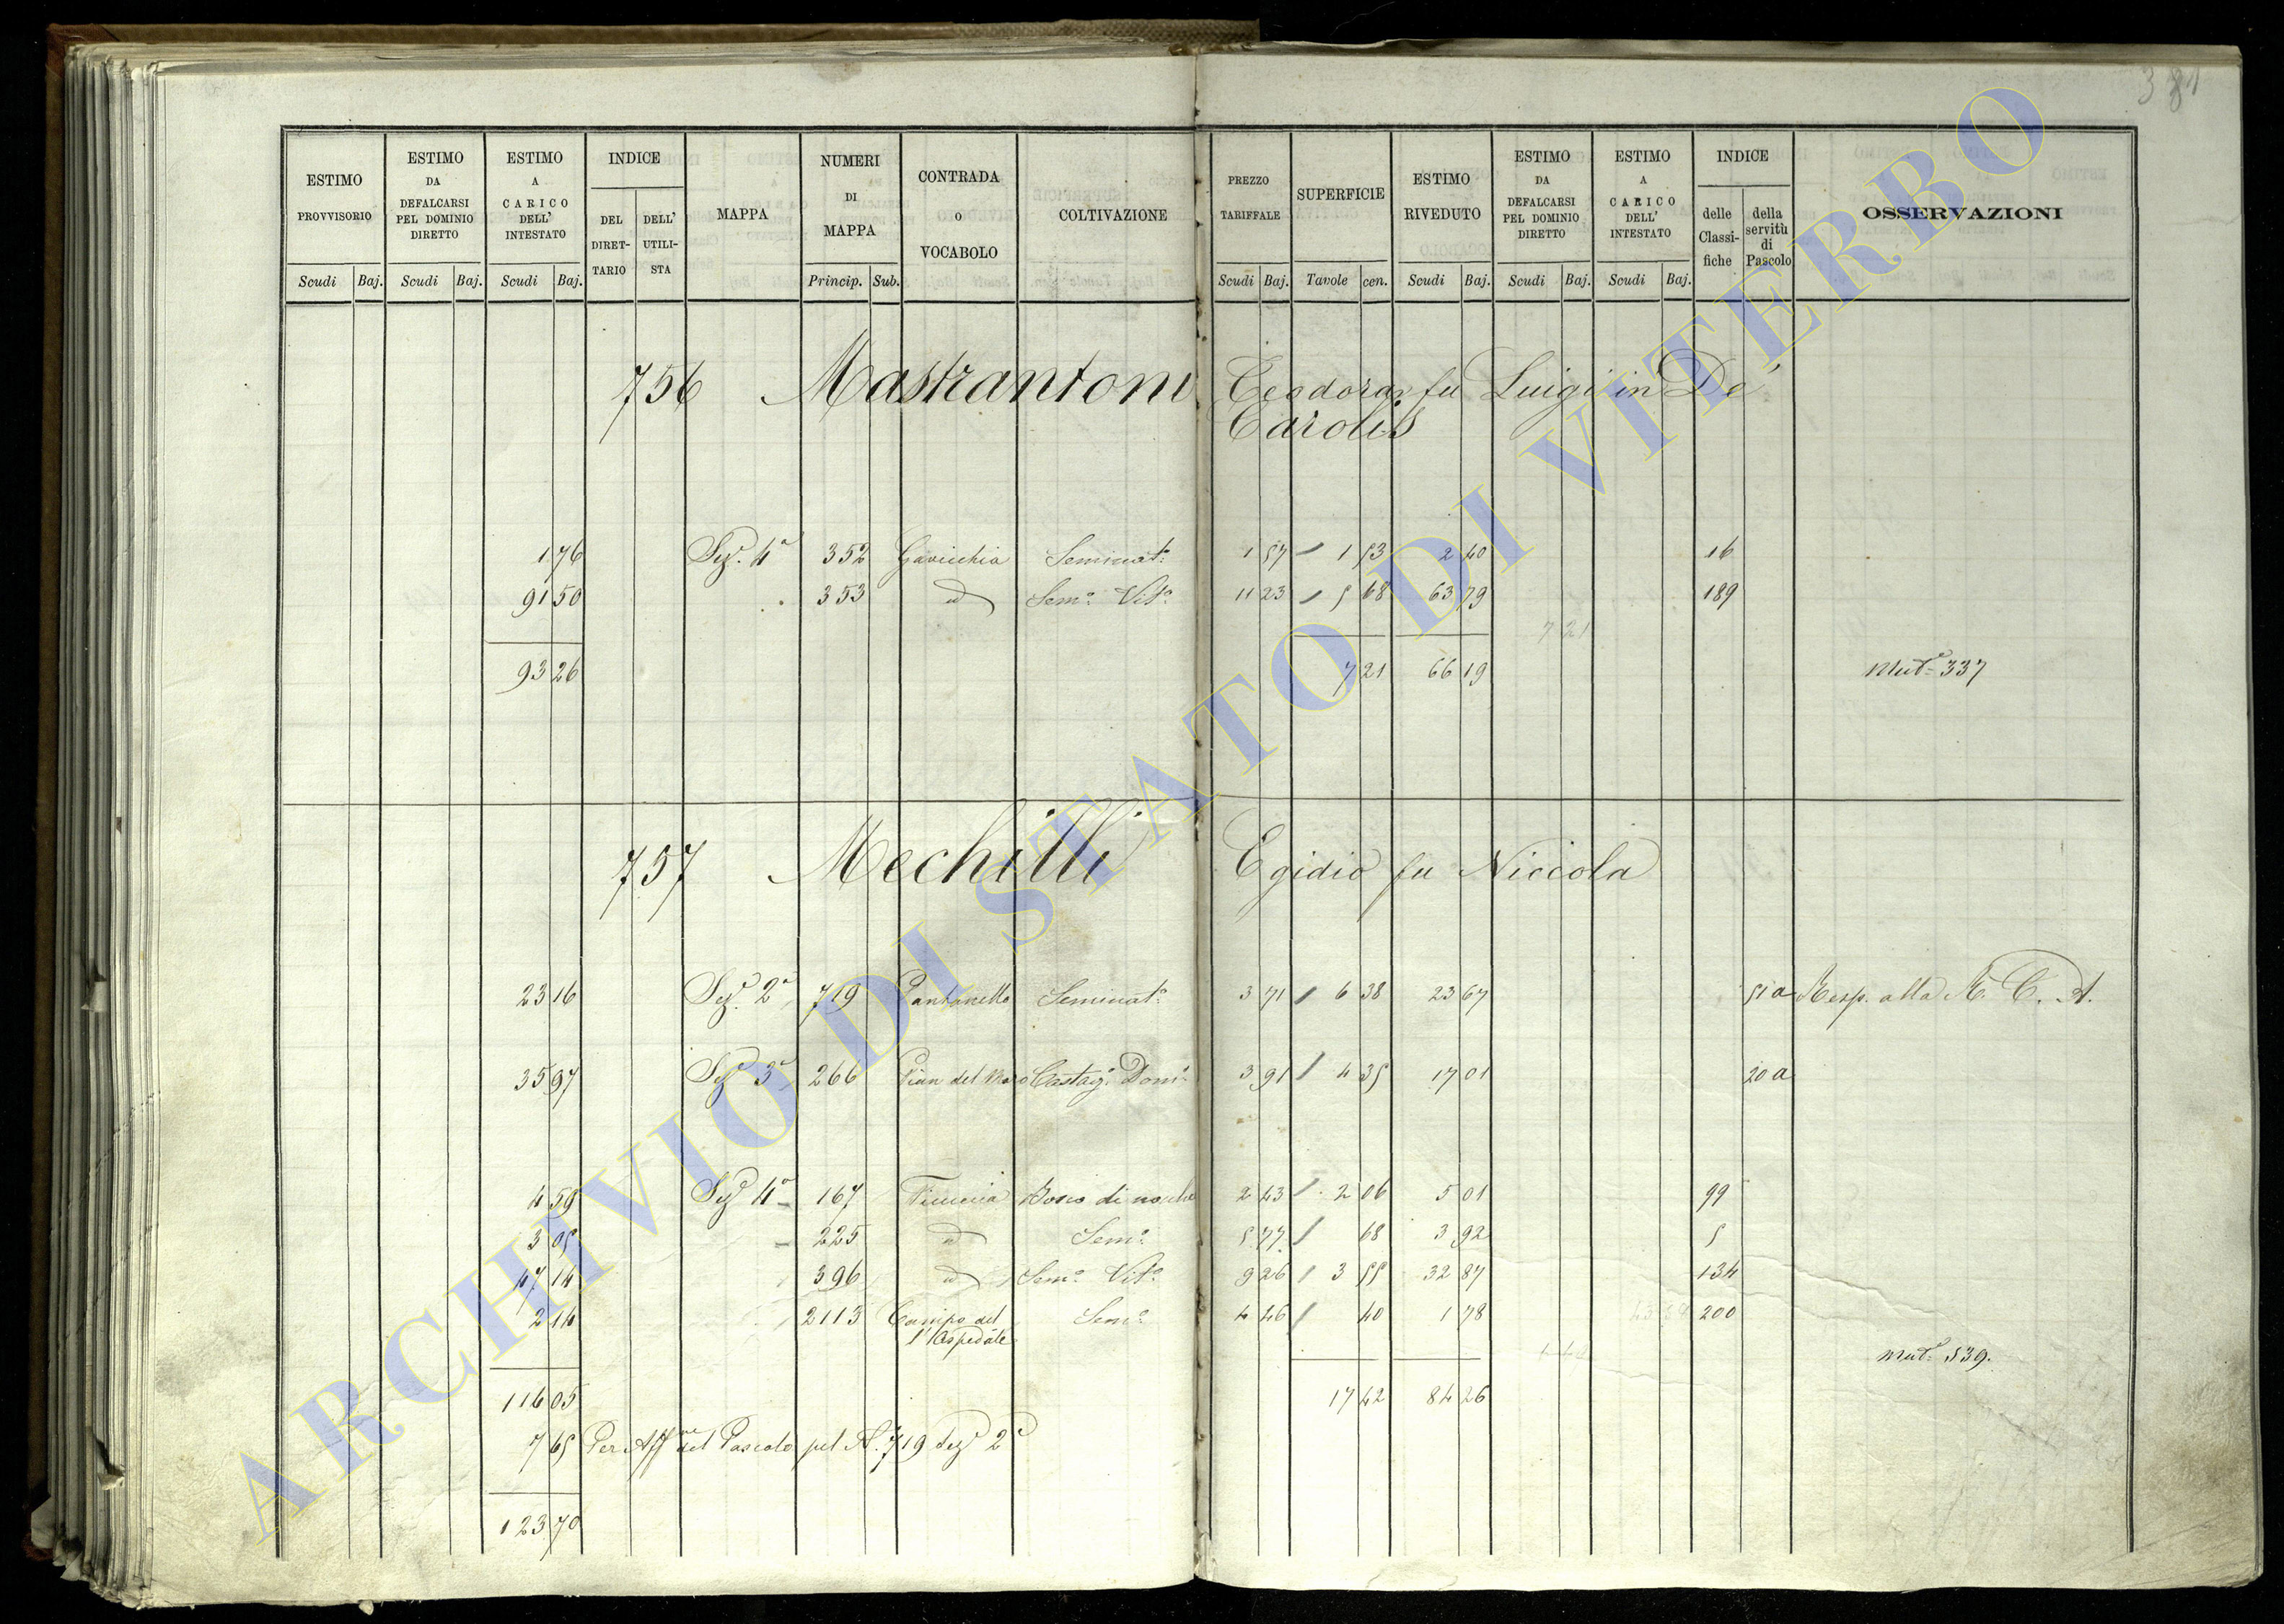 381
ESTIMO PROVVISORIO Scudi Baj.
ESTIMO DA DEFALCARSI PEL DOMINIO DIRETTO Scudi Baj.
ESTIMO A CARICO DELL' INTESTATO Scudi Baj.
INDICE DEL DIRET- TARIO DELL' UTILI- STA
MAPPA
NUMERI DI MAPPA Princip. Sub.
CONTRADA O VOCABOLO
COLTIVAZIONE
PREZZO TARIFFALE Scudi Baj.
SUPERFICIE Tavole cen.
ESTIMO RIVEDUTO Scudi Baj.
ESTIMO DA DEFALCARSI PEL DOMINIO DIRETTO Scudi Baj.
ESTIMO A CARICO DELL' INTESTATO Scudi Baj.
INDICE delle Classi- fiche della servitù di Pascolo
OSSERVAZIONI
756 Mastrantoni Teodora fu Luigi in De
Carolis
1 76 Sez. 4a 352 Gavicchia Seminato 1 57 1 53 2 40 16
91 50 353 id Semo Vito 11 23 5 68 63 79 189
7 21
93 26 7 21 66 19 Muta 337
757 Mechilli Egidio fu Niccola
23 16 Seza 2a 719 Pantanello Seminato 3 71 6 38 23 67 51 a Resp. alla R. C. A.
35 97 Seza 3a 266 Pian del Castago Domo 3 91 4 35 17 01 20 a
4 59 Seza 4a 167 Bosco di 2 43 2 06 5 01 99
3 05 225 id Semo 5 77 68 3 92 5
47 14 396 id Semo Vito 9 26 3 55 32 87 134
2 14 2113 Campo del Semo 4 46 40 1 78 200
l'Ospedale
Muta 539.
116 05 17 42 84 26
7 65 Per Affne del Pascolo pel N. 719 Seza 2a
123 70
ARCHIVIO DI STATO DI VITERBO